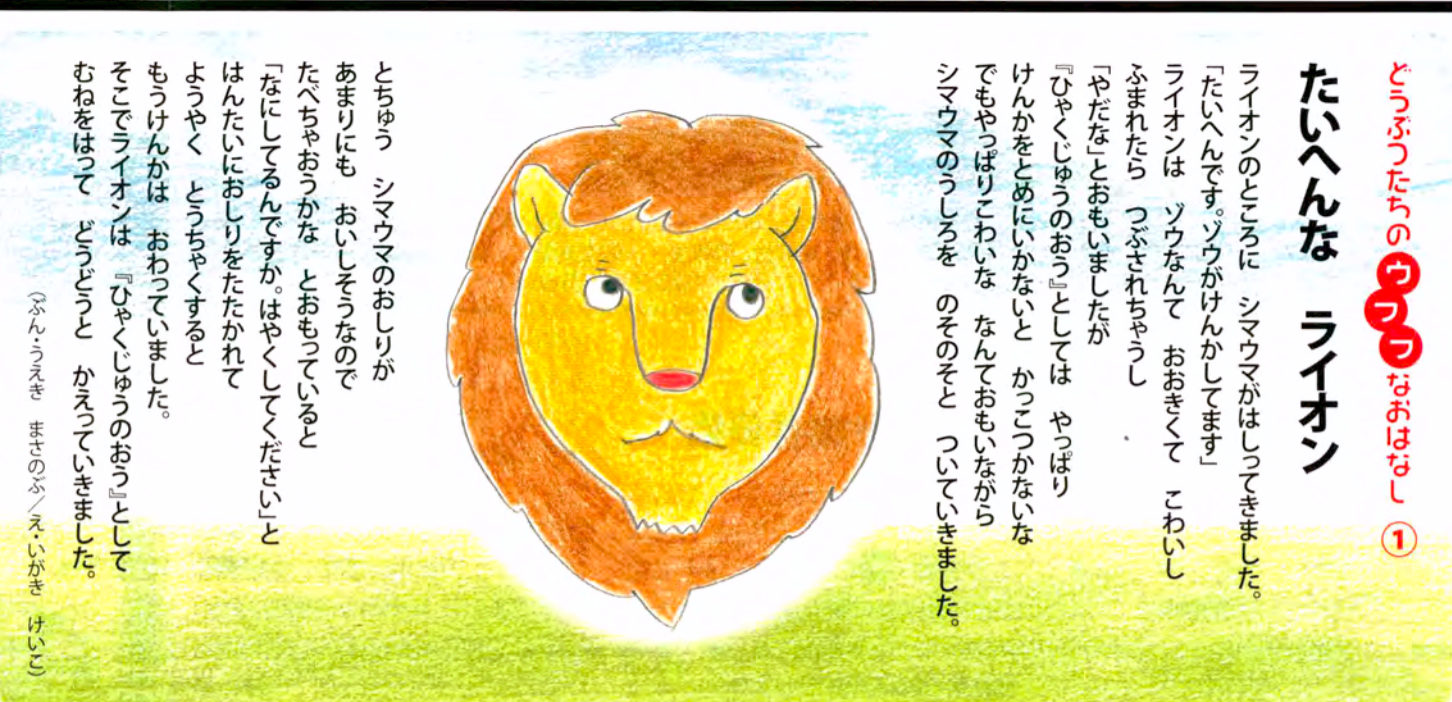 どうぶつたちのウフフなおはなし ①
たいへんな　ライオン
ライオンのところに　シマウマがはしってきました。
「たいへんです。ゾウがけんかしてます」
ライオンは　ゾウなんて　おおきくて　こわいし
ふまれたら　つぶされちゃうし
「やだな」とおもいましたが
『ひゃくじゅうのおう』としては　やっぱり
けんかをとめにいかないと　かっこつかないな
でもやっぱりこわいな　なんておもいながら
シマウマのうしろを　のそのそと　ついていきました。
とちゅう　シマウマのおしりが
あまりにも　おいしそうなので
たべちゃおうかな　とおもっていると
「なにしてるんですか。はやくしてください」と
はんたいにおしりをたたかれて
ようやく　とうちゃくすると
もうけんかは　おわっていました。
そこでライオンは　『ひゃくじゅうのおう』として
むねをはって　どうどうと　かえっていきました。
（ぶん・うえき　まさのぶ／え・いがき　けいこ）